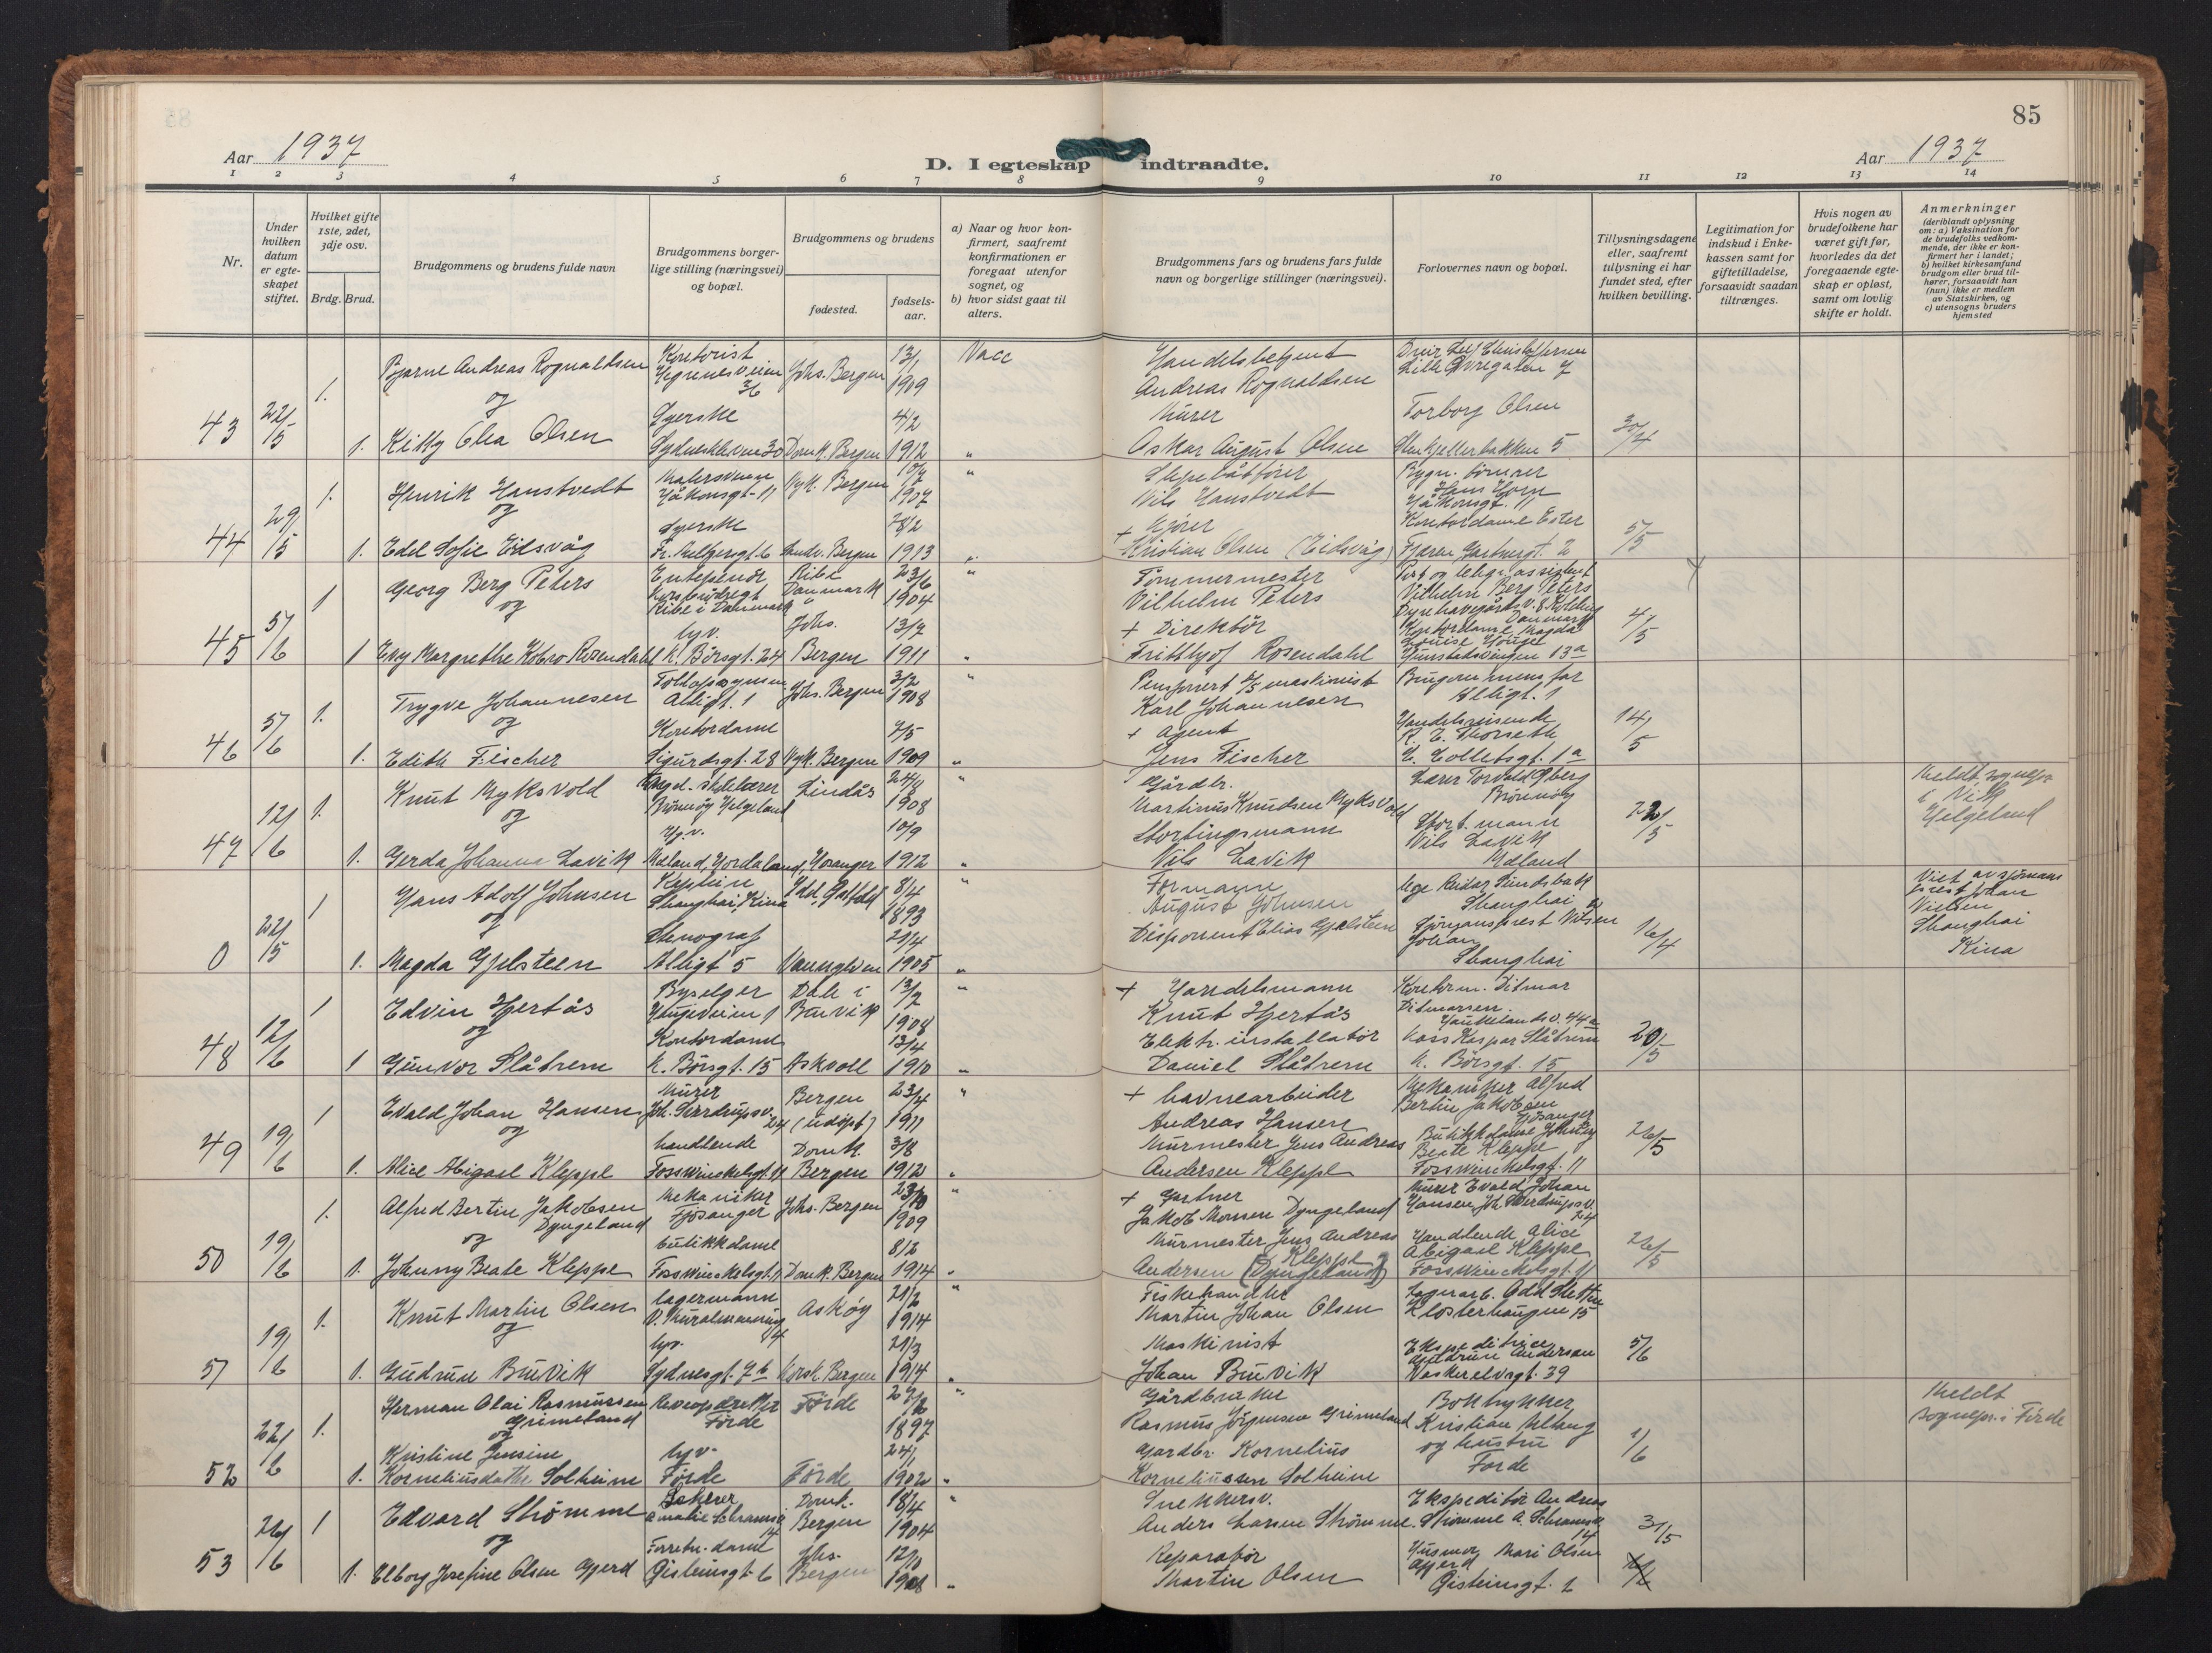 85
Aar 1937
D. I egteskap indtraadte.
Aar 1937
1 2 3 4 5 6 7 8 9 10 11 12 13 14
Nr.
Under hvilken datum er egteskapet stiftet.
Hvilket gifte 1ste, 2det, 3dje osv.
Brdg. Brud.
Brudgommens og brudens fulde navn
Brudgommens borgerlige stilling (næringsvei) og bopæl.
Brudgommens og brudens
fødested.
fødsels-aar.
a) Naar og hvor konfirmert, saafremt konfirmationen er foregaat utenfor sognet, og
b) hvor sidst gaat til alters.
Brudgommens fars og brudens fars fulde navn og borgerlige stillinger (næringsvei).
Forlovernes navn og bopæl.
Tillysningsdagene eller, saafremt tillysning ei har fundet sted, efter hvilken bevilling.
Legitimation for indskud i Enkekassen samt for giftetilladelse, forsaavidt saadan tiltrænges.
Hvis nogen av brudefolkene har været gift før, hvorledes da det foregaaende egteskap er opløst, samt om lovlig skifte er holdt.
Anmerkninger
(deriblandt oplysning om: a) Vaksination for de brudefolks vedkommende, der ikke er konfirmert her i landet; b) hvilket kirkesamfund brudgom eller brud tilhører, forsaavidt han (hun) ikke er medlem av Statskirken, og c) utensogns bruders hjemsted
43 22/5 1. Bjarne Andreas Rognaldsen Kontorist Johs. Bergen 13/1 1909 Vacc
Andreas Rognaldsen
Lille Øvregaten 7
og
1. Kitty Olea Olsen Syerske Sydneskleven 30 Domk. Bergen 4/2 1912 "
Murer Oskar August Olsen
Torborg Olsen 30/4
44 29/5 1. Henrik Hanstvedt Malersvenn Håkonsgt. 11 Nyk. Bergen 10/7 1907 "
Nils Hanstvedt
Bygn. tømmer Hans Horn Håkonsgt. 11
og
1. Edel Sofie Eidsvåg Syerske Sandv. Bergen 28/2 1913 "
+ Kristian Olsen (Eidsvåg)
Kontordame Ester 5/5
45 5/6 1 Georg Berg Peters Ribe Danmark 23/6 1904 "
Ribe i Danmark
Tømmermester Vilhelm Peters
Vilhelm Berg Peters
Danmark
og
1 Eny Margrethe Kobro Rosendahl hjv. K. Börsgt. 24 Johs. Bergen 13/7 1911 "
+ Direktör Frithjof Rosendahl
Kontordame Magda Louise 4/5
46 5/6 1. Trygve Johannesen Alligt. 1 Johs. Bergen 3/2 1908 "
Karl Johannesen
Brugommens far Alligt. 1
og
1. Edith Fischer Kontordame Sigurdsgt. 28 Nyk. Bergen 7/5 1909 "
+ Agent Jens Fischer
Handelsreisende 14/5
47 12/6 1. Knut Myksvold Brönnöy Helgeland Lindås 24/8 1908 "
Gårdbr. Martinus Knudsen Myksvold
Lærer Torvald Öberg Brönnöy
Meldt sognepr. i Vik Helgeland
og
1. Gerda Johanna Lavik Hjv. Mæland, Hordaland Hosanger 10/9 1912 "
Stortingsmann Nils Lavik
Stort. mann Nils Lavik Mæland 22/5
0 22/5 1 Hans Adolf Johnsen Kaptein Shanghai, Kina Idd, Østfold 8/4 1893 "
Formann August Johnsen
Shanghai
Viet av sjömansprest Johan Nielsen Shanghai Kina
og
1. Magda Gjelsteen Stenograf Alligt 5 21/4 1905 "
Disponent Elias Gjelsteen
Johan
Shanghai 16/4
48 12/6 1 Edvin Hjertås Byselger Haugeveien 1 Dale i Bruvik 13/2 1908 "
+ Handelsmann Knut Hjertås
Kontorm. Ditmar Ditmarsen
og
1 Gunvor Slåtrem Kontordame K. Börsgt. 15 Askvoll 13/4 1910 "
Elektr. installatör Daniel Slåtrem
Kaspar Slåtrem K. Börsgt. 15 20/5
49 19/6 1 Evald Johan Hansen Murer Joh. Sverdrupsv. 24 Bergen (udöpt) 23/4 1911 "
+ havnearbeider Andreas Hansen
Mekaniker Alfred Bertin Jakobsen Fjösanger
og
1. Alice Abigael Kleppe handlende Fosswinckelsgt. 11 Domk. Bergen 3/8 1912 "
Murmester Jens Andreas Andersen Kleppe
Butikkdame Johnny Beate Kleppe Fosswinckelsgt. 11 26/5
50 19/6 1. Alfred Bertin Jakobsen Dyngeland Mekaniker Fjösanger Johs. Bergen 23/10 1909 "
+ Gartner Jakob Monsen Dyngeland
Murer Evald Johan Hansen Joh. Sverdrupsv. 24
og
1. Johnny Beate Kleppe butikkdame Fosswinckelsgt. 11 Domk. Bergen 8/2 1914 "
Murmester Jens Andreas Andersen Kleppe (Dyngeland)
Handlende Alice Abigael Kleppe Fosswinckelsgt. 11 26/5
51 19/6 1. Knut Martin Olsen lagermann Askøy 21/2 1914 "
Fiskehandler Martin Johan Olsen
Lagerarb. Odd Sletten Klosterhaugen 15
og
1. Gudrun Bruvik hjv. Sydnesgt. 7b Korsk. Bergen 21/3 1914 "
Maskinist Johan Bruvik
Ekspeditrice Gudrun Anderson Vaskerelvsgt. 39 5/6
52 22/6 1. Herman Olai Rasmussen Grimeland Förde Förde 27/2 1897 "
Gårdbruker Rasmus Jörgensen Grimeland
Boktrykker Kristian og hustru Förde
Meldt sognepr. i Förde
og
1. Kristine Jensine Korneliusdatter Solheim hjv. Förde Förde 24/1 1902 "
Gardbr. Kornelius Korneliussen Solheim 1/6
53 26/6 1 Edvard Strömme Domk. Bergen 18/4 1904 "
Snekkersv. Anders Larsen Strömme
Ekspeditör Andreas Strömme 31/5
og
1. Elborg Josefine Olsen Gjerd Forretn. dame Gisteinsgt. 6 Johs. Bergen 12/10 1908 "
Reparatör Martin Olsen
Husmor Mari Olsen Gjerd